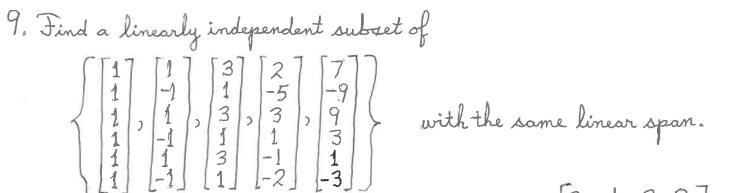 9. Find a linearly independent subset of
{[1 1 1 1 1 1], [1 -1 1 -1 1 -1], [3 1 3 1 3 1], [2 -5 3 1 -1 -2], [7 -9 9 3 1 -3]} with the same linear span.